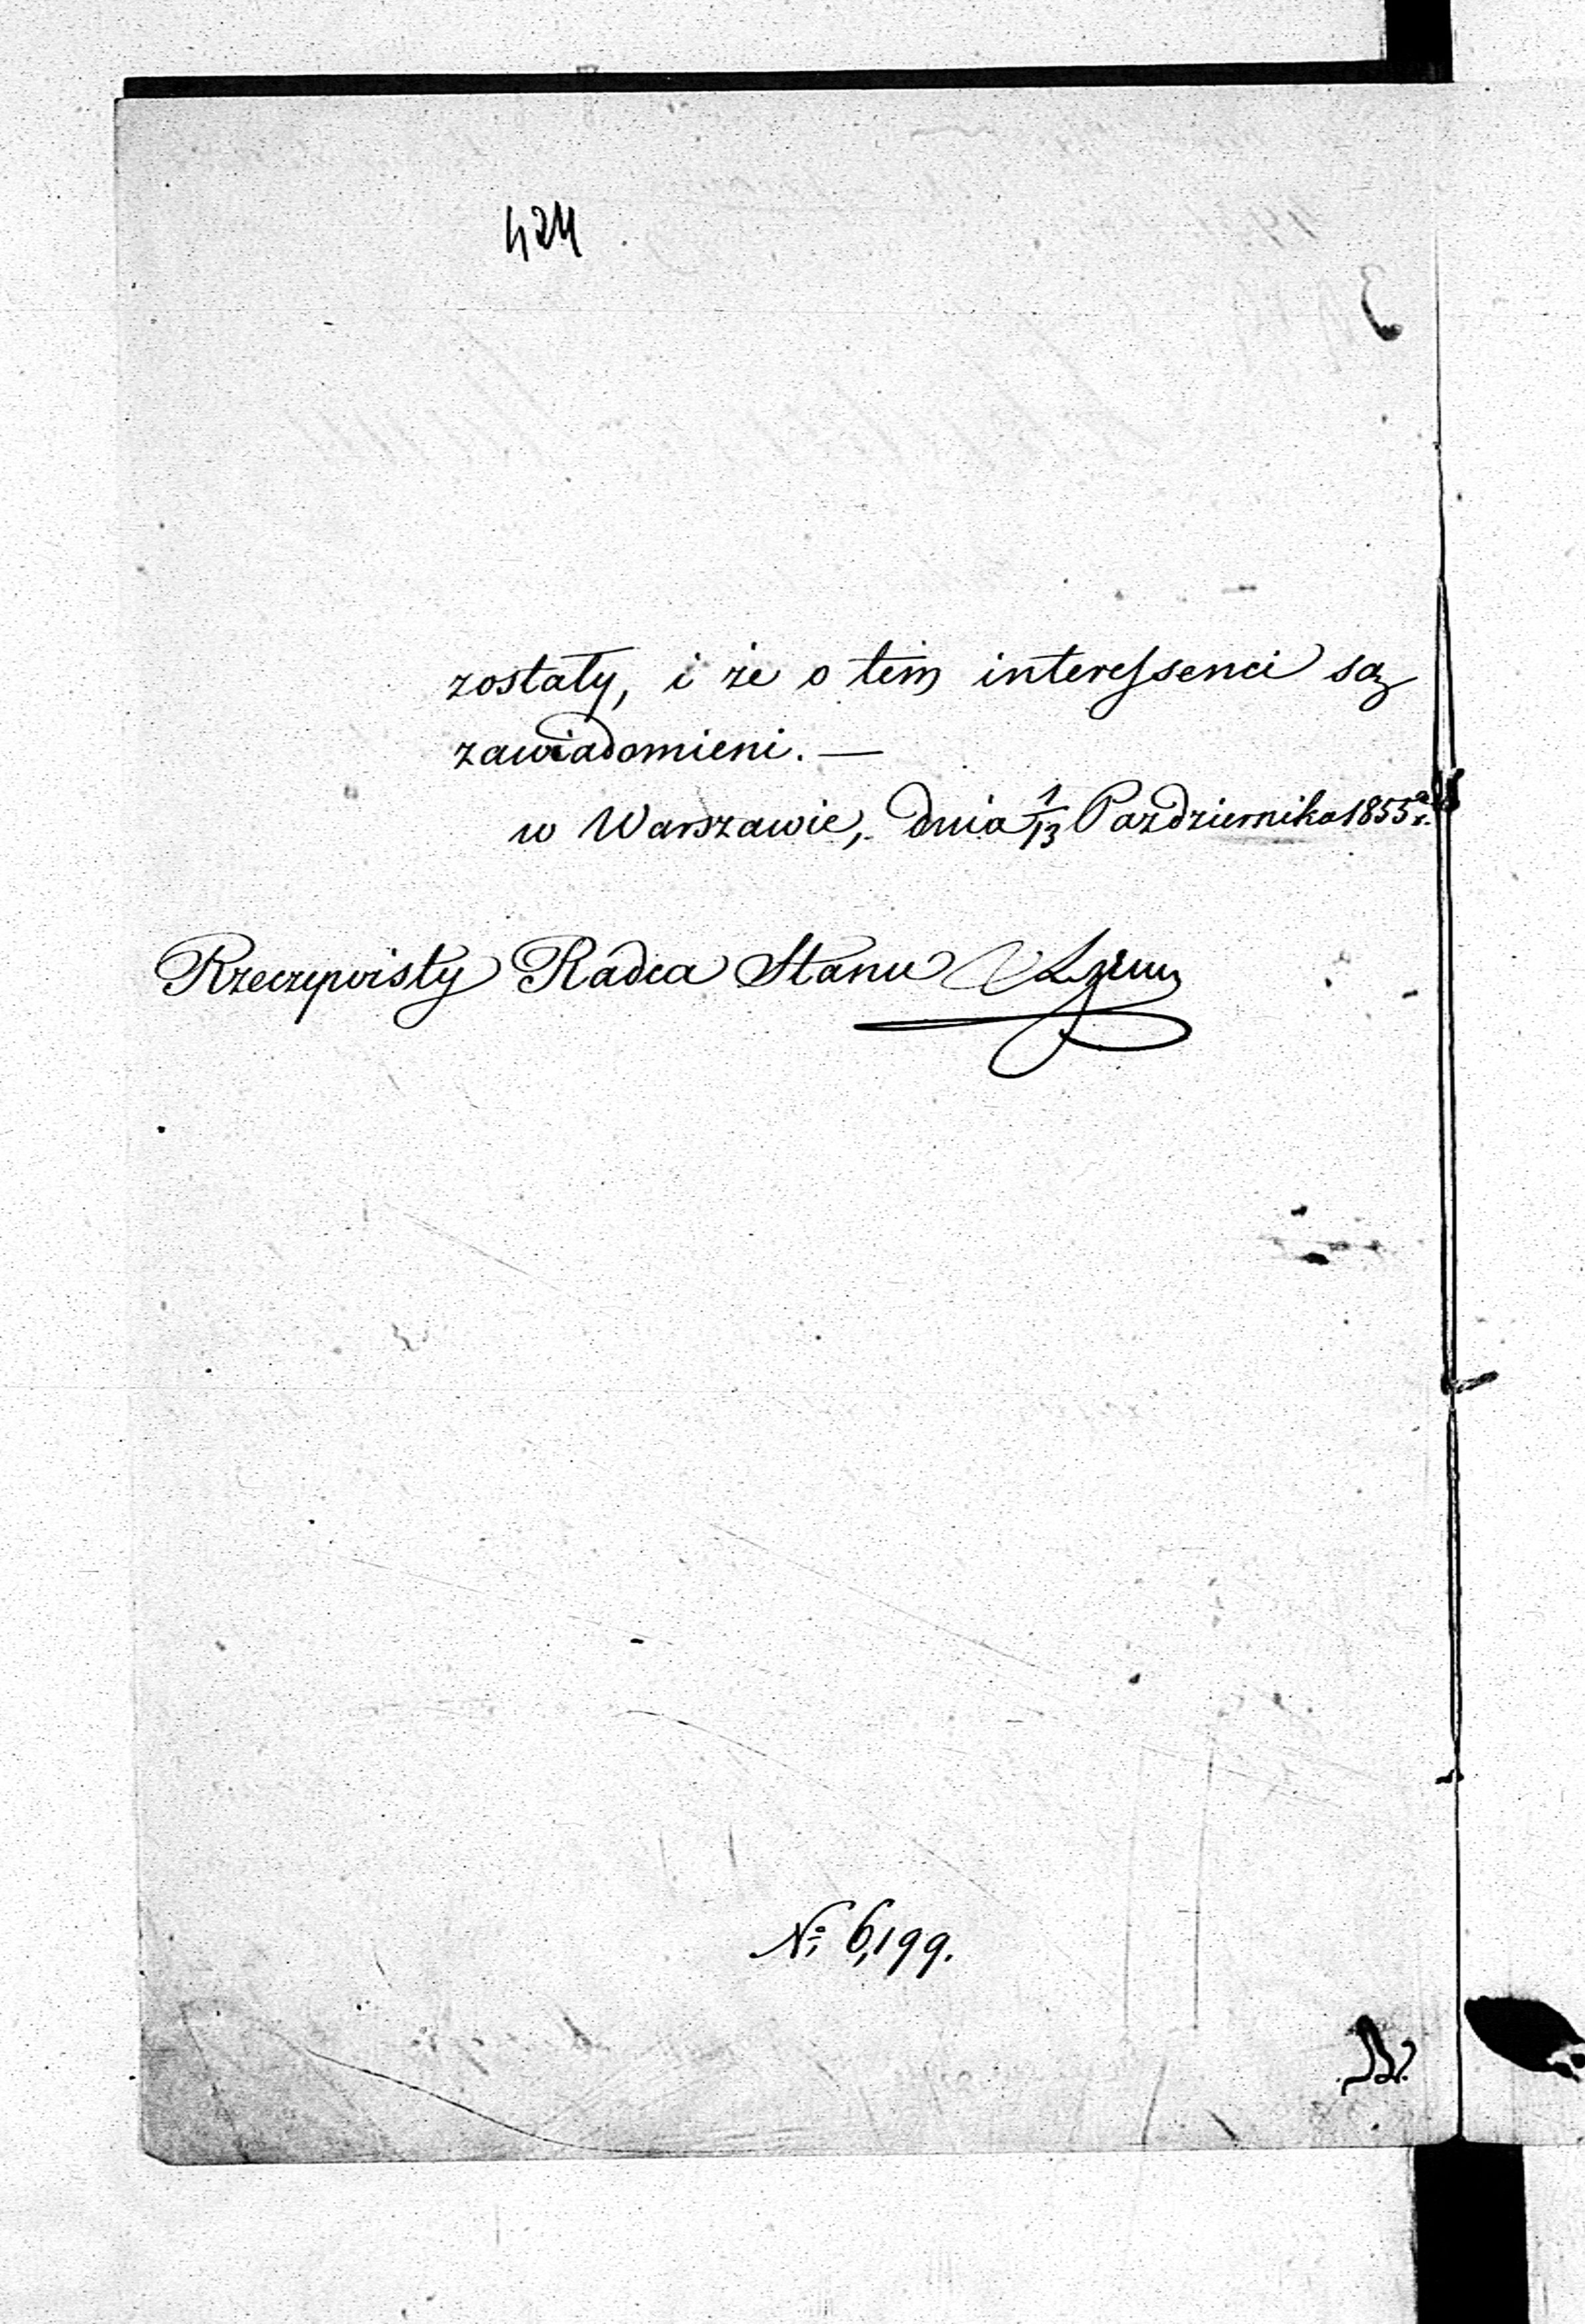 424
zostały, i że o tem interessenci są
zawiadomieni. —
w Warszawie, dnia 1/13 Pazdziernika 1855 r.
Rzeczywisty Radca Stanu
No 6,199.